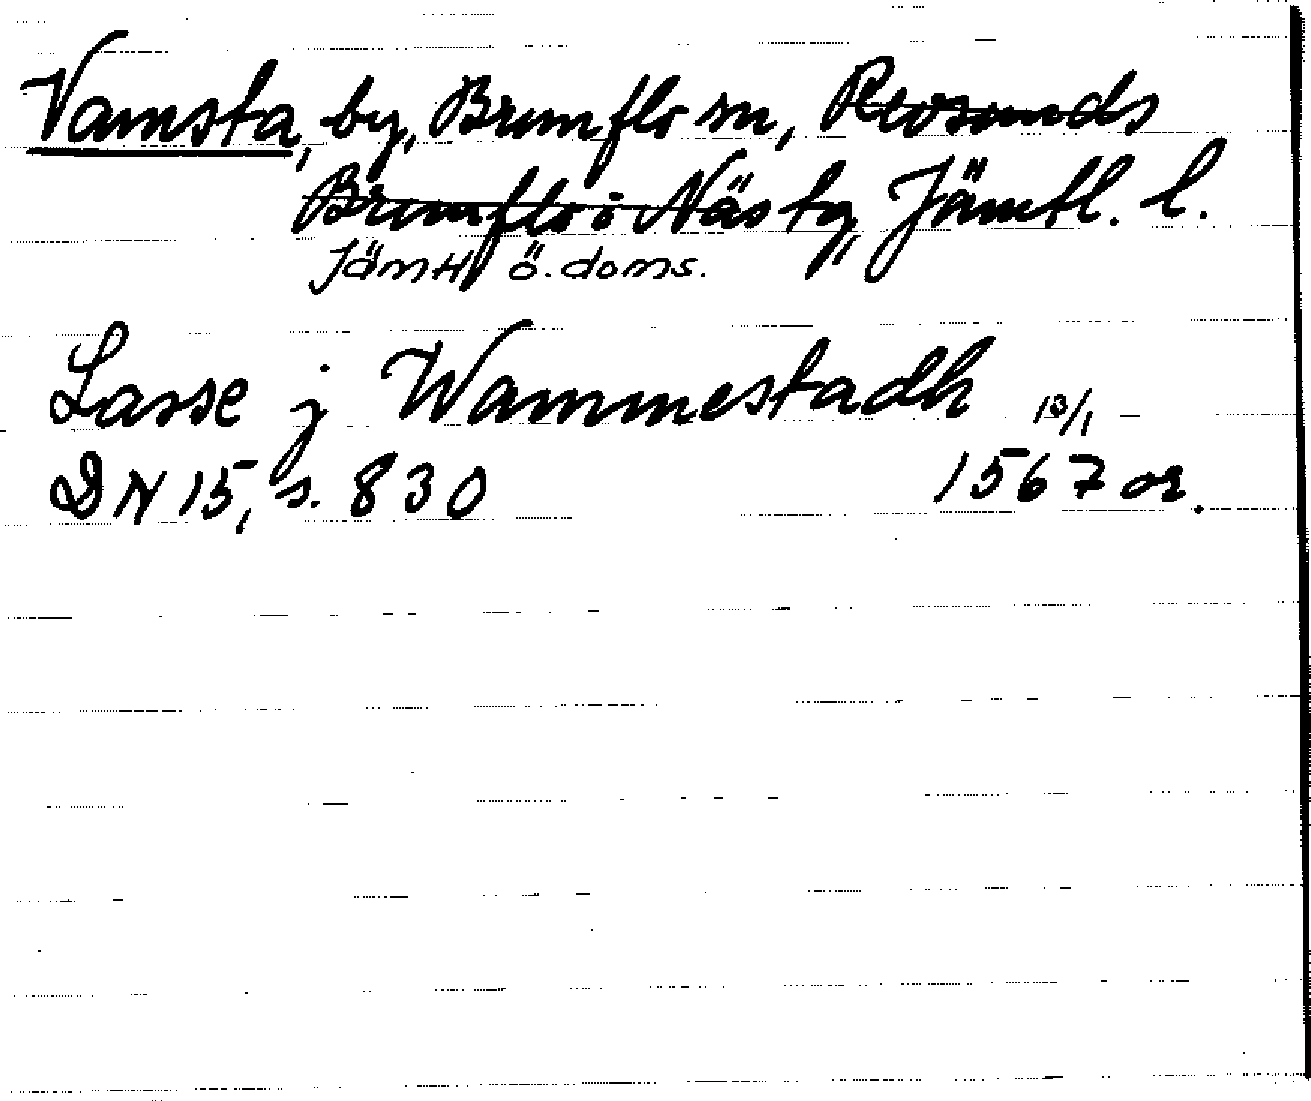 Vamsta, by, Brunflo sn, Revsunds
Brunflo o Näs tg, Jämtl. l.
Jämtl ö. doms.
Lasse j Wammestadh 13/1
DN 15, s. 830 1567 or.